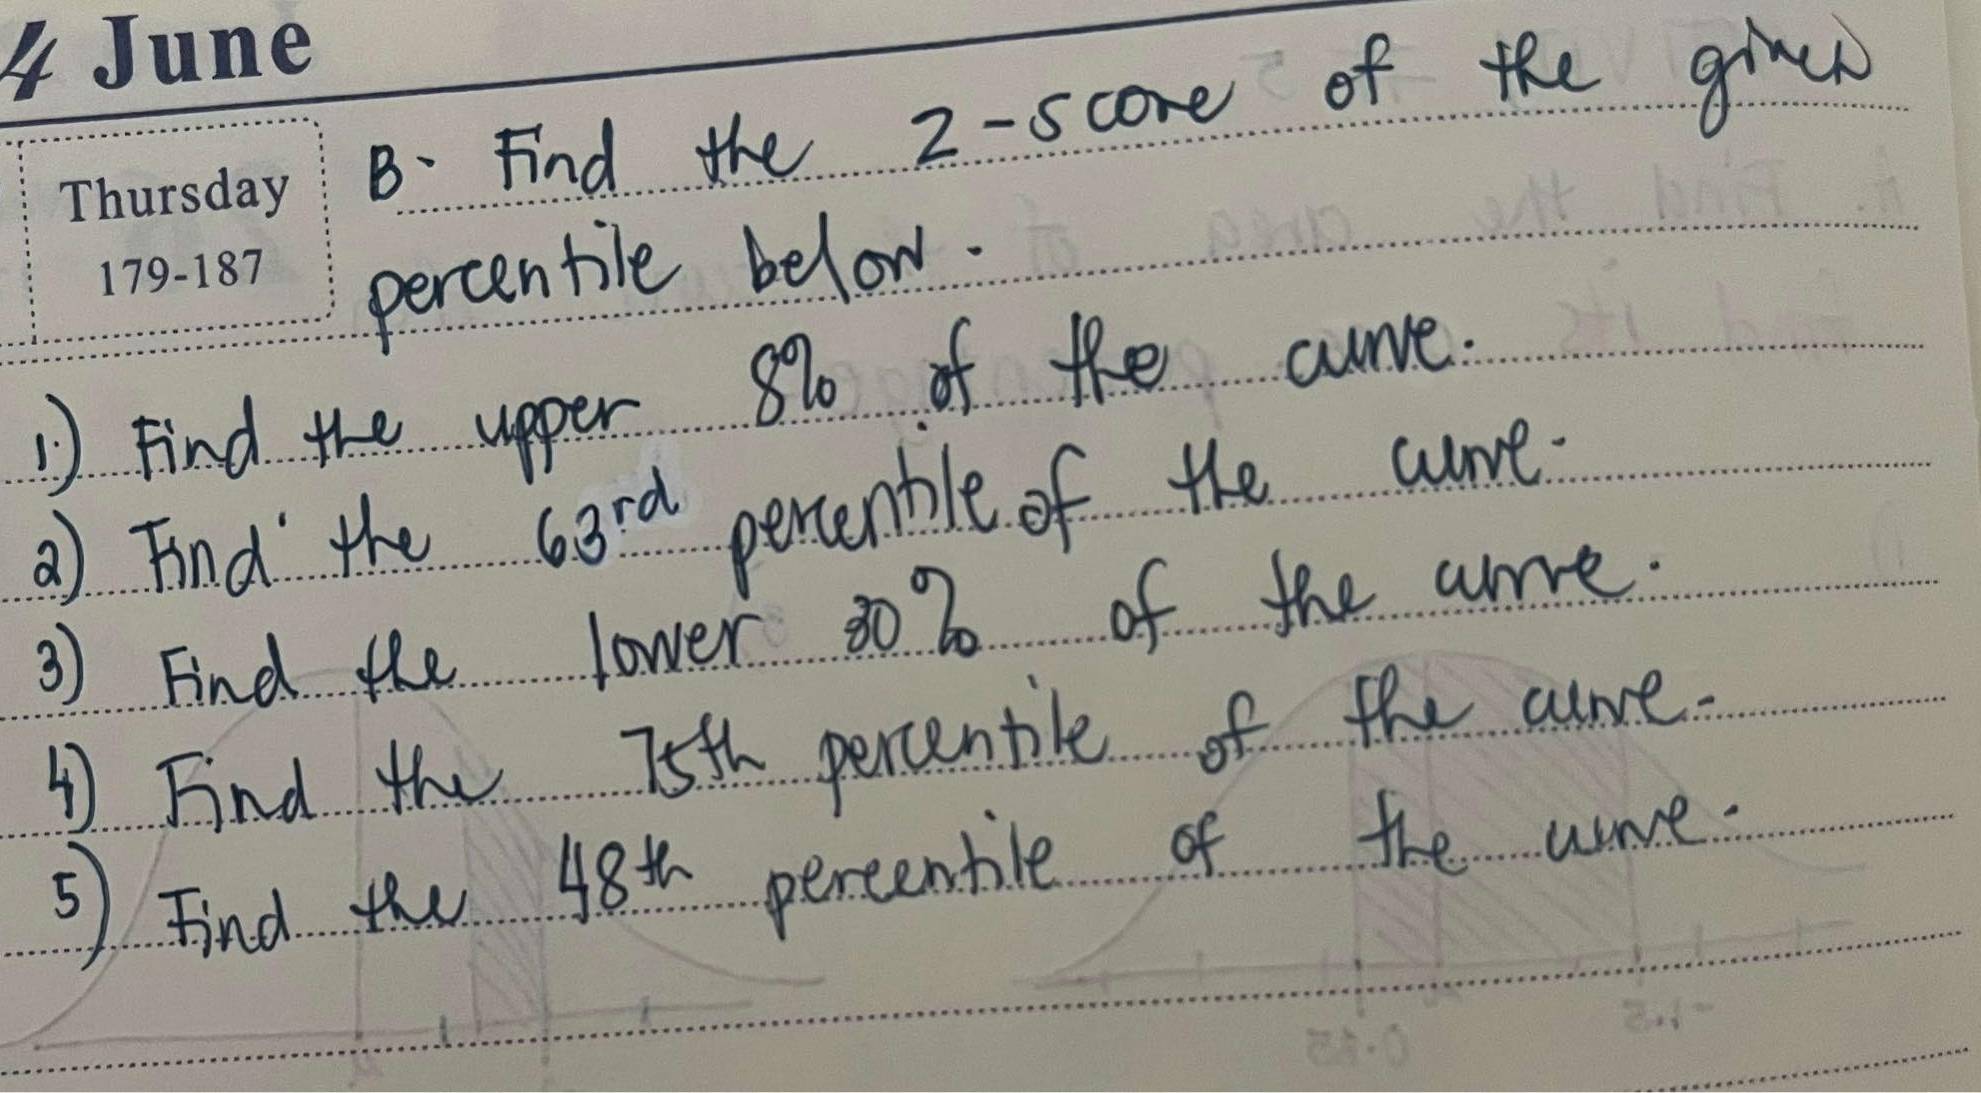 4 June
Thursday
179-187
B. Find the z-score of the given
percentile below.
1.) Find the upper 8% of the curve.
2) Find the 63rd percentile of the curve.
3) Find the lower 30% of the curve.
4) Find the 75th percentile of the curve.
5) Find the 48th percentile of the curve.